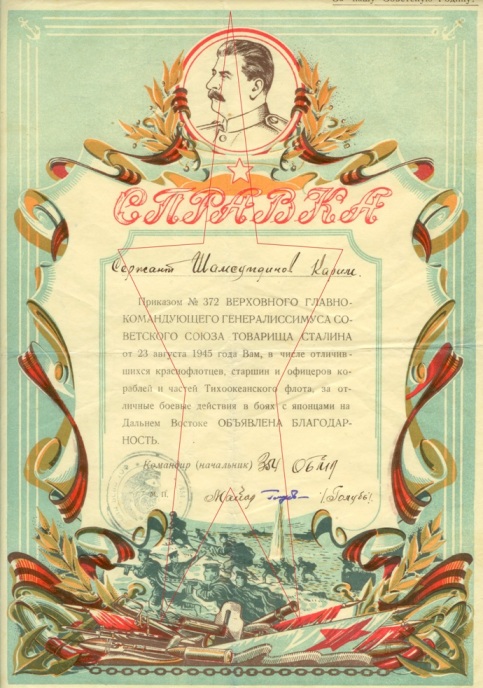 За нашу Советскую Родину!
СПРАВКА
Сержант Шамсутдинов Карим.
Приказом № 372 ВЕРХОВНОГО ГЛАВНО-
КОМАНДУЮЩЕГО ГЕНЕРАЛИССИМУСА СО-
ВЕТСКОГО СОЮЗА ТОВАРИЩА СТАЛИНА
от 23 августа 1945 года Вам, в числе отличив-
шихся краснофлотцев, старшин и офицеров ко-
раблей и частей Тихоокеанского флота, за от-
личные боевые действия в боях с японцами на
Дальнем Востоке ОБЪЯВЛЕНА БЛАГОДАР-
НОСТЬ.
Командир (начальник)
М. П. Майор /Голубь/